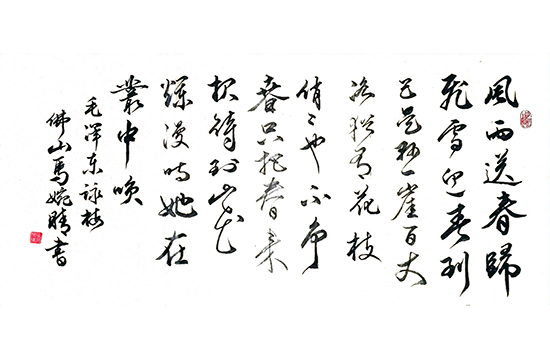 風雨送春歸
飛雪迎春到
已是懸崖百丈
冰猶有花枝
俏〻也不爭
春只把春來
报待到山花
爛漫時她在
叢中咲
毛澤東詠梅
佛山馬婉晴書